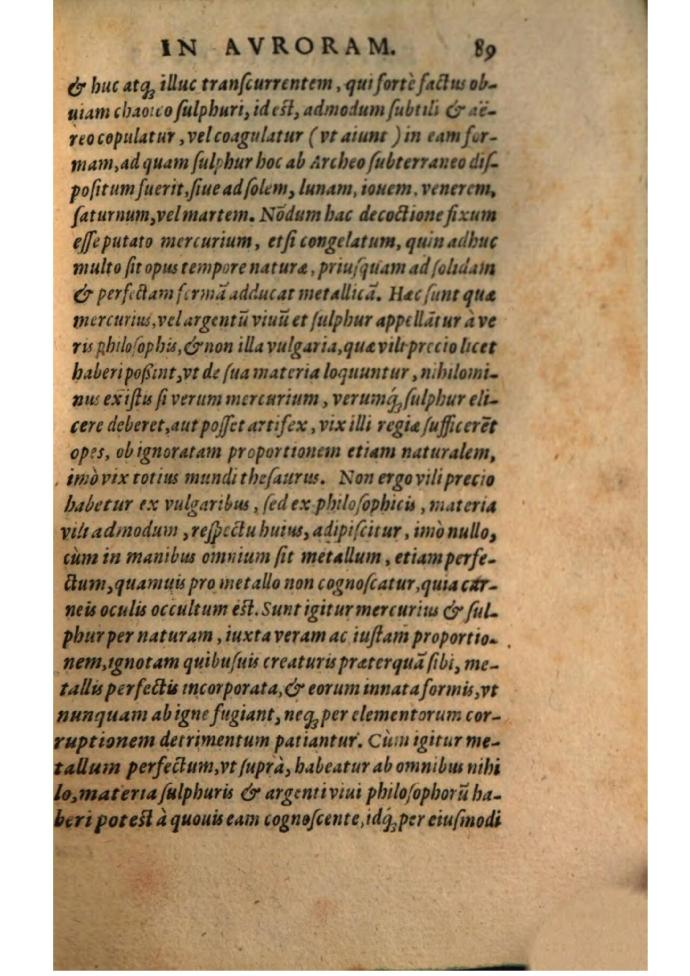 IN AVRORAM. 89
& huc atq; illuc tranſcurrentem, qui fortè factus ob-
uiam chaotico ſulphuri, id eſt, admodum ſubtili & aë-
reo copulatur, vel coagulatur (vt aiunt) in eam for-
mam, ad quam ſulphur hoc ab Archeo ſubterraneo diſ-
poſitum fuerit, ſiue ad ſolem, lunam, iouem, venerem,
ſaturnum, vel martem. Nõdum hac decoctione fixum
eſſe putato mercurium, etſi congelatum, quin adhuc
multo ſit opus tempore naturæ, priuſquam ad ſolidam
& perfectam formã adducat metallicã. Hæc ſunt quæ
mercurius, vel argentũ viuũ et ſulphur appellãtur à ve
ris philoſophis, & non illa vulgaria, quæ vili precio licet
haberi poßint, vt de ſua materia loquuntur, nihilomi-
nus ex iſtis ſi verum mercurium, verumq́; ſulphur eli-
cere deberet, aut poſſet artifex, vix illi regiæ ſufficerẽt
opes, ob ignoratam proportionem etiam naturalem,
imò vix totius mundi theſaurus. Non ergo vili precio
habetur ex vulgaribus, ſed ex philoſophicis, materia
vili admodum, reſpectu huius, adipiſcitur, imò nullo,
cùm in manibus omnium ſit metallum, etiam perfe-
ctum, quamuis pro metallo non cognoſcatur, quia car-
neis oculis occultum eſt. Sunt igitur mercurius & ſul-
phur per naturam, iuxta veram ac iuſtam proportio-
nem, ignotam quibuſuis creaturis præterquã ſibi, me-
tallis perfectis incorporata, & eorum innata formis, vt
nunquam ab igne fugiant, neq; per elementorum cor-
ruptionem detrimentum patiantur. Cùm igitur me-
tallum perfectum, vt ſuprà, habeatur ab omnibus nihi
lo, materia ſulphuris & argenti viui philoſophorũ ha-
beri poteſt à quouis eam cognoſcente, idq́; per eiuſmodi